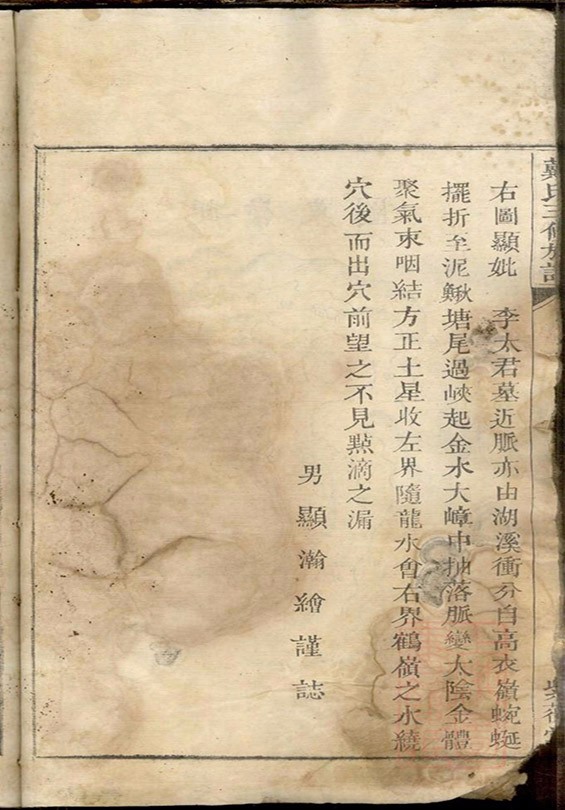 右圖顯妣　李太君墓近脈亦由湖溪衝分自高衣嶺蜿蜒
擺折至泥鰍塘尾過峽起金水大嶂中抽落脈變太陰金體
聚氣束咽結方正土星收左界隨龍水會右界鶴嶺之水繞
穴後而出穴前望之不見點滴之漏
男顯瀚繪謹誌